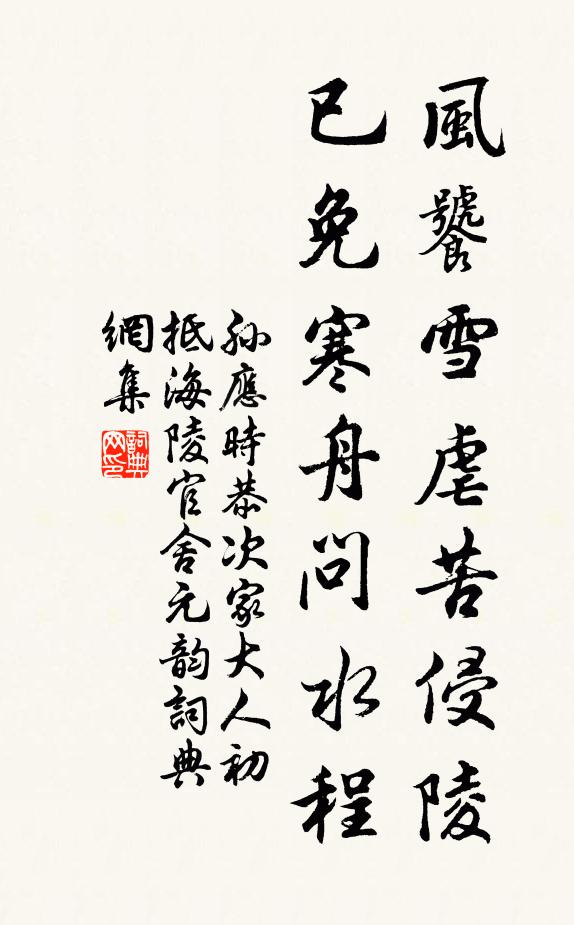 風饕雪虐苦侵陵
已免寒舟問水程
孫應時恭次家大人初
抵海陵官舍元韵詞典
網集
詞典网印